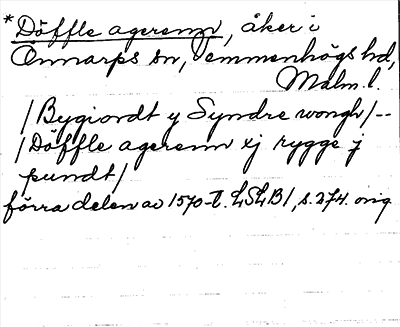 *Döffle agerenn, åker i
Önnarps sn, Vemmenhögs hd,
Malm. l.
/Bygiordt y Syndre wongh/--
/Döffle agerenn xj rygge j
pundt/
förra delen av 1570-t. LSLB1, s. 274. orig